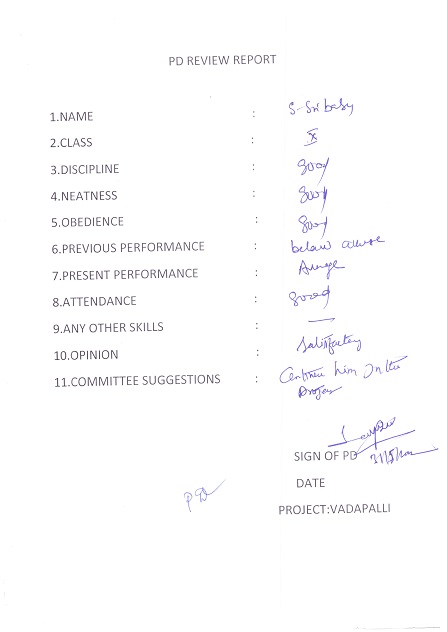 PD REVIEW REPORT
1.NAME : S-Sri baby
2.CLASS : X
3.DISCIPLINE : good
4.NEATNESS : good
5.OBEDIENCE : good
6.PREVIOUS PERFORMANCE : below average
7.PRESENT PERFORMANCE : Average
8.ATTENDANCE : good
9.ANY OTHER SKILLS : —
10.OPINION : Satisfactory
11.COMMITTEE SUGGESTIONS : Continue him in the
SIGN OF PD
DATE
PD
PROJECT:VADAPALLI